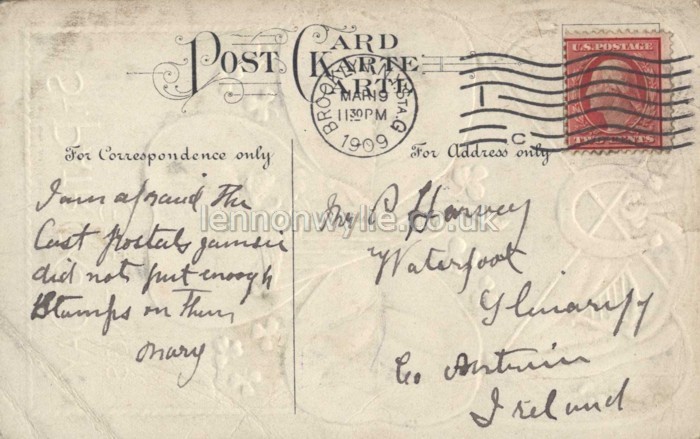 POST CARD
KARTE
CARTE
BROOKLYN, N.Y. STA. G
MAR 19
11 30 PM
1909
1
C
U.S. POSTAGE
TWO CENTS
For Correspondence only
For Address only
I am afraid the
Last Postals
did not put enough
Stamps on Them
Mary
P Harvey
Waterfoot
Glenariff
Co Antrim
Ireland
lennonwylie.co.uk